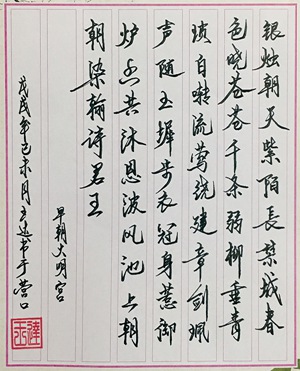 银烛朝天紫陌長禁城春
色晓苍苍千条弱柳垂青
琐百啭流莺绕建章剑珮
声随玉墀步衣冠身惹御
炉香共沐恩波凤池上朝
朝染翰诗君王
早朝大明宫
戊戌年己未月王达书于营口